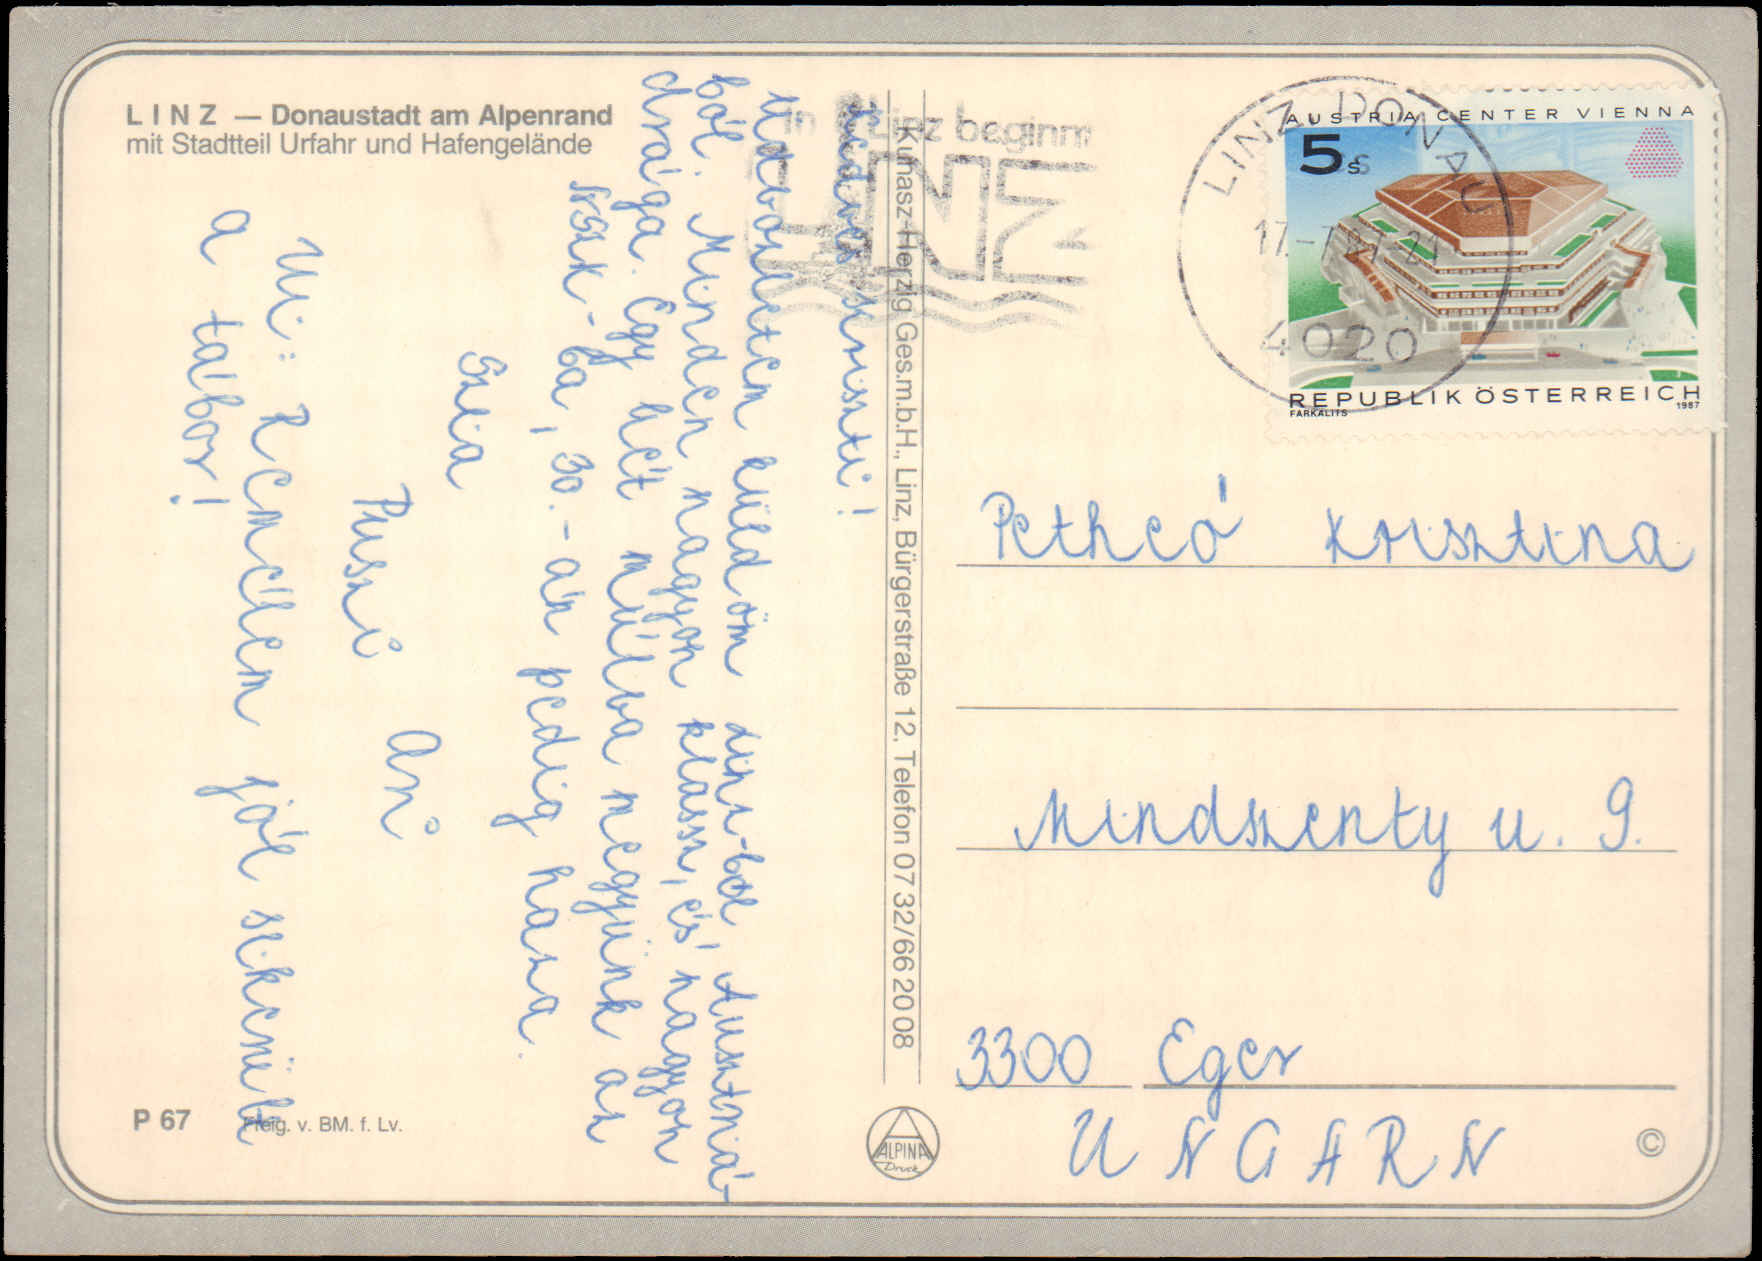 LINZ — Donaustadt am Alpenrand
mit Stadtteil Urfahr und Hafengelände
Kriszti!
Üdvözletem küldöm Linz-ből, Ausztriá-
ból. Minden nagyon klassz, és nagyon
drága. Egy hét múlva megyünk az
NSZK-ba, 30.-án pedig haza.
Szia
Puszi
Ani
Ui: Remélem jól sikerült
a tábor!
P 67
Freig. v. BM. f. Lv.
Kuhasz-Herzig Ges.m.b.H., Linz, Bürgerstraße 12, Telefon 07 32/66 20 08
ALPINA
Druck
in Linz beginnt
LINZ
LINZ DONAU
17.-7.87-21
4020
AUSTRIA CENTER VIENNA
5s
REPUBLIK ÖSTERREICH
FARKALITS
1987
Petheő Krisztina
Mindszenty u. 9.
3300 Eger
UNGARN
©